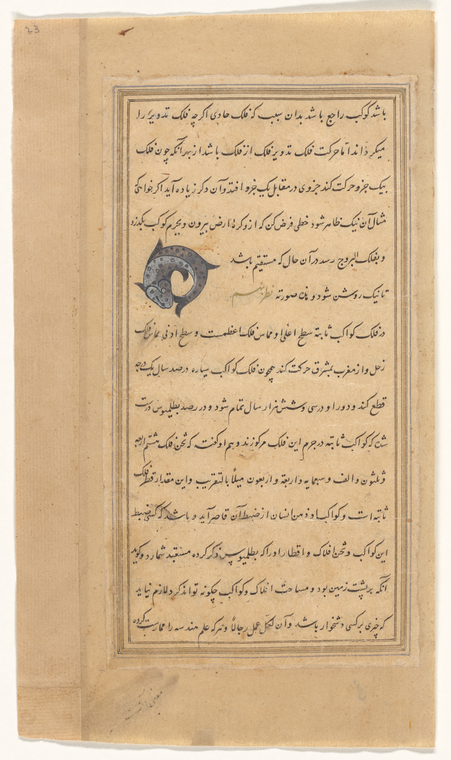 23
باشد کوکب راجع باشد بدان سبب که فلک حاوی اگرچه فلک تدویر را
میکرداند اما حرکت فلک تدویر فلک از فلک باشد از بهر آنکه چون فلک
بیک جزو حرکت کند جزوی در مقابل یک جزو افتد و آن دکر زیاده آید اگر خواهی
مثال آن نیک ظاهر شود خطی فرض کن که از مرکز ارض بیرون و بجرم کوکب بگذرد
و بفلک البروج رسد در آن حال که مستقیم باشد
تا نیک روشن شود و بدین صورته
در فلک کواکب ثابتة سطح اعلی او مماس فلک اعظمست و سطح ادنی مماس فلک
زحل و از مغرب بمشرق حرکت کند همچون فلک کواکب سیاره در صد سال یک درجه
قطع کند و دور او در سی و شش هزار سال تمام شود و در رصد بطلیموس درست
شد که کواکب ثابته در جرم این فلک مرکوزند و هم او کفت که ثخن فلک هشتم اربعه
و ثلثون و الف و سبعمایه و اربعة و اربعون میلاً بالتقریب و این مقدار قطر فلک
ثابته است و کواکب او ذهن انسان از ضبط آن قاصر آید و باشد که کسی ضبط
این کواکب و ثخن افلاک و اقطار او را که بطلیموس ذکر کرده مستبعد شمارد و کوید
آنکه بر پشت زمین بود و مساحت افلاک و کواکب چکونه تواند کرد لازم نیاید
که چیزی بر کسی دشخوار باشد و آن لکل عمل رجالاً و هر که علم هندسه را ممارست کرده